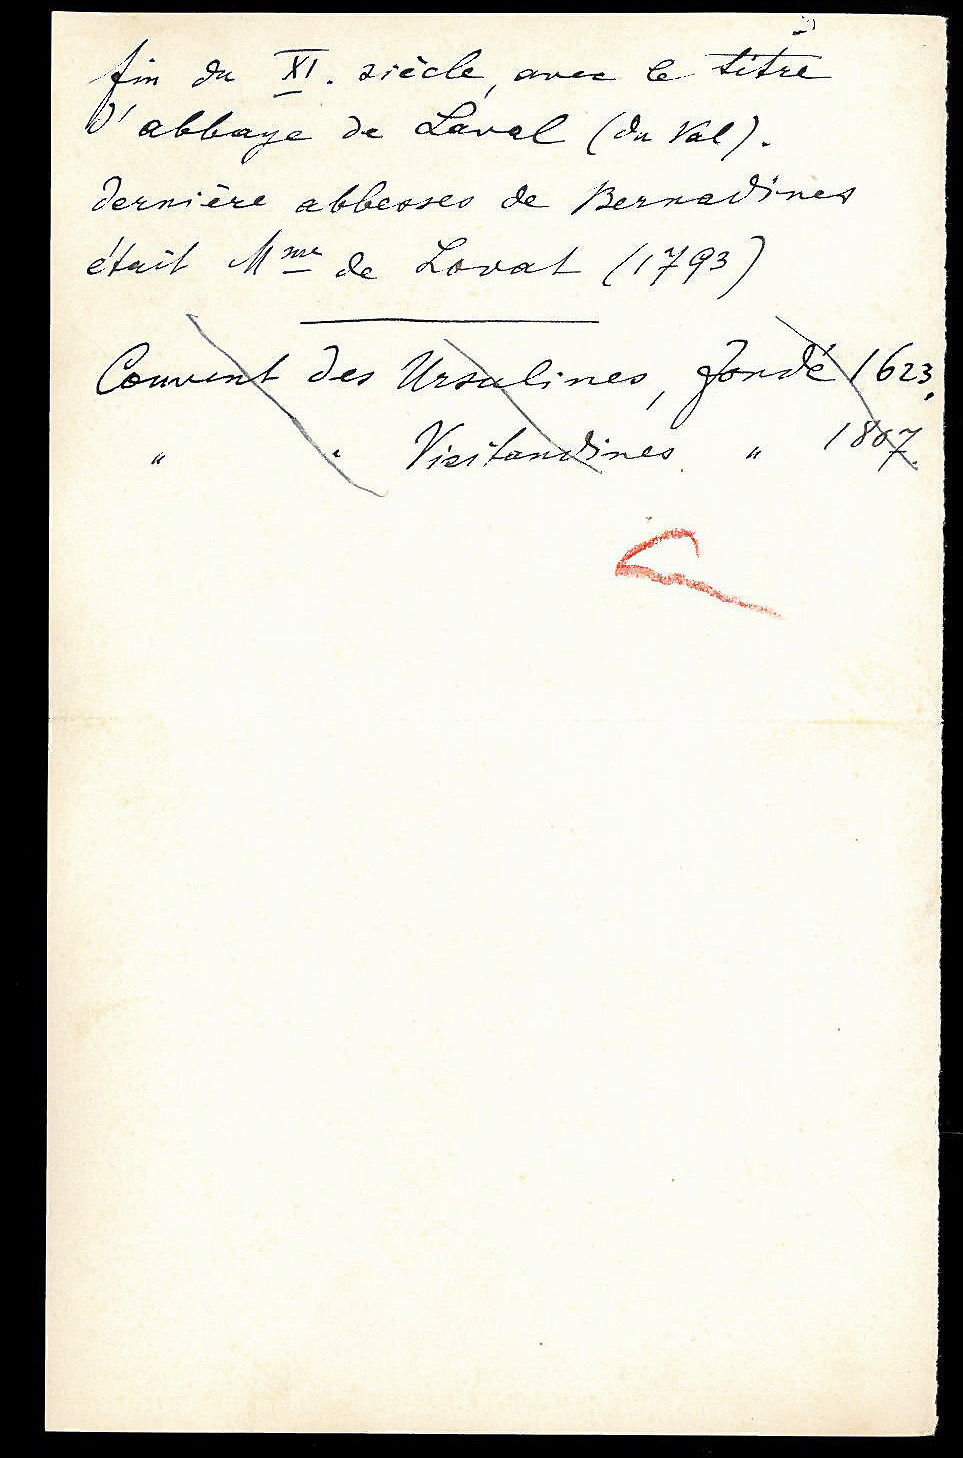 fin du XI. siècle, avec le titre
d'abbaye de Laval (du Val).
dernière abbesses de Bernadines
était Mme de Lovat (1793)
Couvent des Ursulines, fondé 1623.
" " Visitandines " 1807.